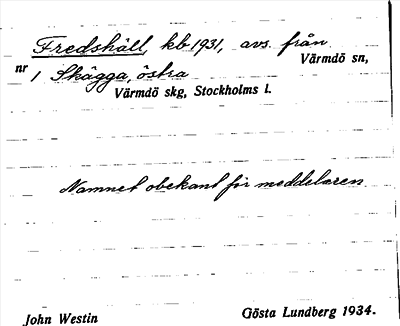 Fredshäll, kb 1931, avs. från
Värmdö sn,
nr 1 Skägga, östra
Värmdö skg, Stockholms l.
Namnet obekant för meddelaren
John Westin
Gösta Lundberg 1934.